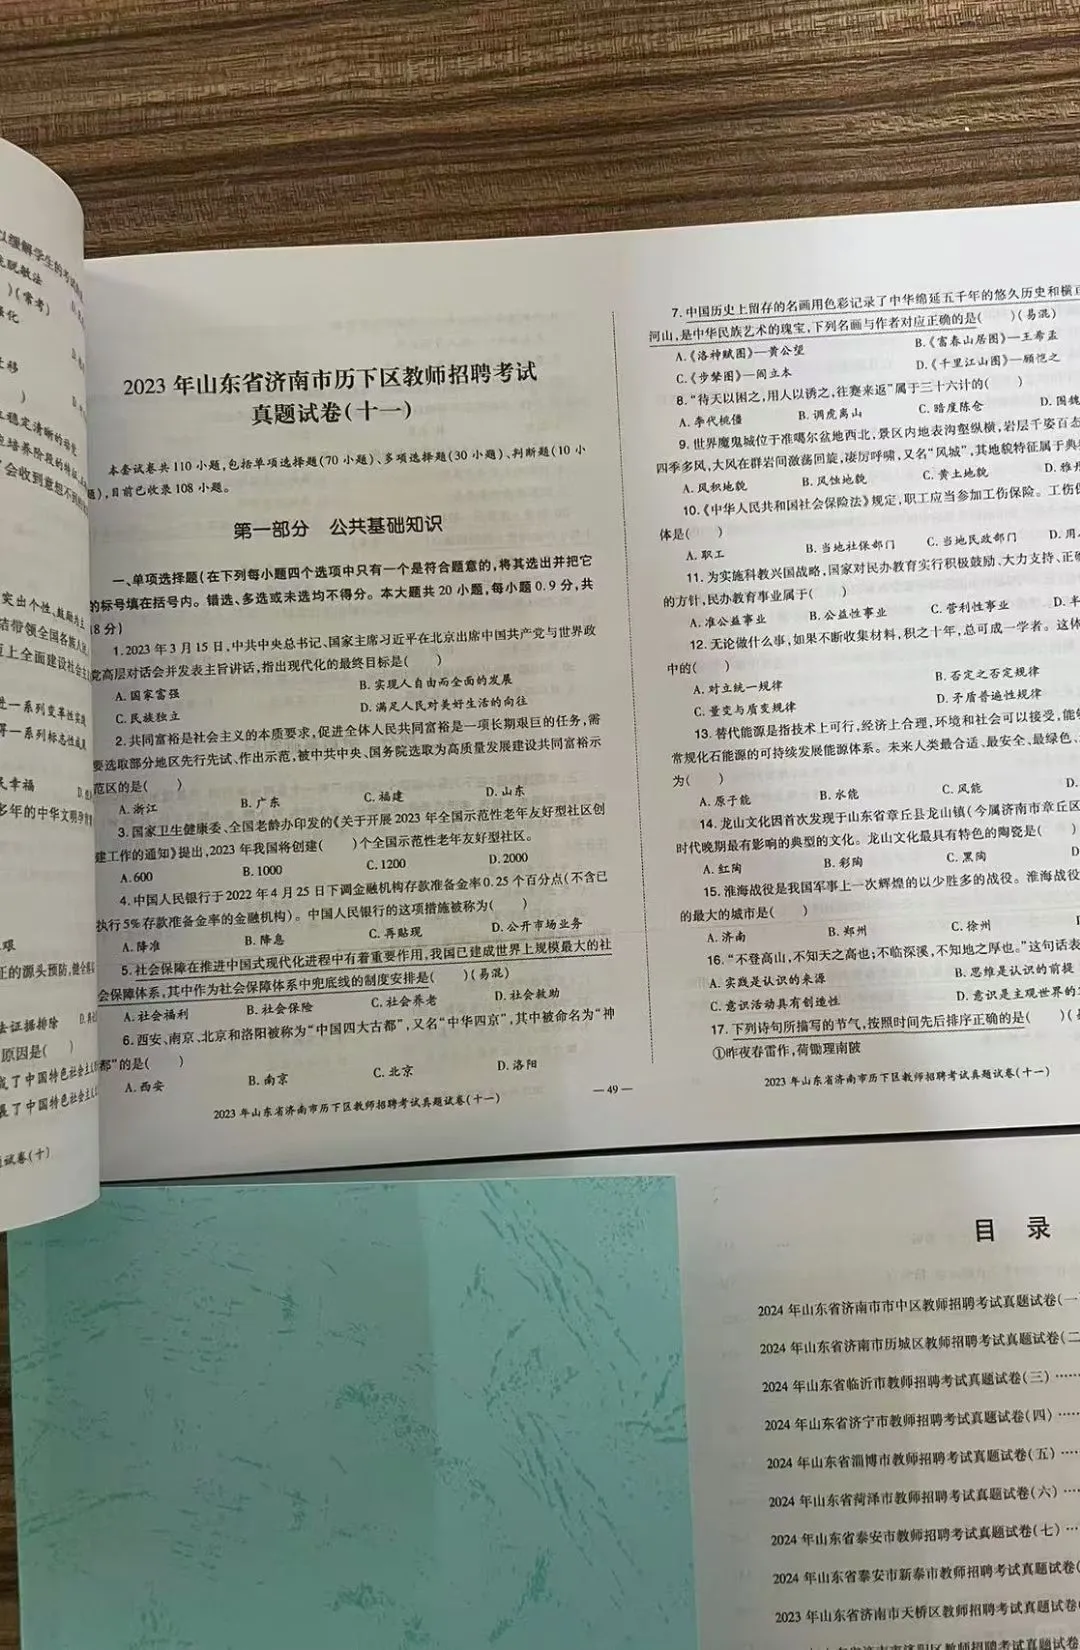 以缓解学生的考试
统脱敏法
)(常考)
强化
迁移
)
立稳定清晰的动觉
会收到意想不到的
突出个性、鼓励
结带领全国各族人
面上全面建设社会主
进一系列变革性实践
得一系列标志性成果
民幸福
多年的中华文明孕育
艰
正的源头预防,健全
法证据排除
原因是( )
成了中国特色社会主义
展了中国特色社会主义
题试卷(十)
2023 年山东省济南市历下区教师招聘考试
真题试卷(十一)
本套试卷共 110 小题,包括单项选择题(70 小题)、多项选择题(30 小题)、判断题(10 小
题),目前已收录 108 小题。
第一部分 公共基础知识
一、单项选择题(在下列每小题四个选项中只有一个是符合题意的,将其选出并把它
的标号填在括号内。错选、多选或未选均不得分。本大题共 20 小题,每小题 0.9 分,共
8 分)
1. 2023 年 3 月 15 日,中共中央总书记、国家主席习近平在北京出席中国共产党与世界政
党高层对话会并发表主旨讲话,指出现代化的最终目标是( )
A. 国家富强 B. 实现人自由而全面的发展
C. 民族独立 D. 满足人民对美好生活的向往
2. 共同富裕是社会主义的本质要求,促进全体人民共同富裕是一项长期艰巨的任务,需
要选取部分地区先行先试、作出示范,被中共中央、国务院选取为高质量发展建设共同富裕示
范区的是( )
A. 浙江 B. 广东 C. 福建 D. 山东
3. 国家卫生健康委、全国老龄办印发的《关于开展 2023 年全国示范性老年友好型社区创
建工作的通知》提出,2023 年我国将创建( )个全国示范性老年友好型社区。
A. 600 B. 1000 C. 1200 D. 2000
4. 中国人民银行于 2022 年 4 月 25 日下调金融机构存款准备金率 0.25 个百分点(不含已
执行 5% 存款准备金率的金融机构)。中国人民银行的这项措施被称为( )
A. 降准 B. 降息 C. 再贴现 D. 公开市场业务
5. 社会保障在推进中国式现代化进程中有着重要作用,我国已建成世界上规模最大的社
会保障体系,其中作为社会保障体系中兜底线的制度安排是( )(易混)
A. 社会福利 B. 社会保险 C. 社会养老 D. 社会救助
6. 西安、南京、北京和洛阳被称为“中国四大古都”,又名“中华四京”,其中被命名为“神
都”的是( )
A. 西安 B. 南京 C. 北京 D. 洛阳
— 49 —
2023 年山东省济南市历下区教师招聘考试真题试卷(十一)
7. 中国历史上留存的名画用色彩记录了中华绵延五千年的悠久历史和横亘
河山,是中华民族艺术的瑰宝,下列名画与作者对应正确的是( )(易混)
A.《洛神赋图》—黄公望 B.《富春山居图》—王希孟
C.《步辇图》—阎立本 D.《千里江山图》—顾恺之
8. “待天以困之,用人以诱之,往蹇来返”属于三十六计的( )
A. 李代桃僵 B. 调虎离山 C. 暗度陈仓 D. 围魏
9. 世界魔鬼城位于准噶尔盆地西北,景区内地表沟壑纵横,岩层千姿百态
四季多风,大风在群岩间激荡回旋,凄厉呼啸,又名“风城”,其地貌特征属于典
A. 风积地貌 B. 风蚀地貌 C. 黄土地貌 D. 雅丹
10.《中华人民共和国社会保险法》规定,职工应当参加工伤保险。工伤保
体是( )
A. 职工 B. 当地社保部门 C. 当地民政部门 D. 用人
11. 为实施科教兴国战略,国家对民办教育实行积极鼓励、大力支持、正确
的方针,民办教育事业属于( )
A. 准公益事业 B. 公益性事业 C. 营利性事业 D. 半
12. 无论做什么事,如果不断收集材料,积之十年,总可成一学者。这体
中的( )
A. 对立统一规律 B. 否定之否定规律
C. 量变与质变规律 D. 矛盾普遍性规律
13. 替代能源是指技术上可行,经济上合理,环境和社会可以接受,能够
常规化石能源的可持续发展能源体系。未来人类最合适、最安全、最绿色、
为( )
A. 原子能 B. 水能 C. 风能 D.
14. 龙山文化因首次发现于山东省章丘县龙山镇(今属济南市章丘区
时代晚期最有影响的典型的文化。龙山文化最具有特色的陶瓷是( )
A. 红陶 B. 彩陶 C. 黑陶 D
15. 淮海战役是我国军事上一次辉煌的以少胜多的战役。淮海战役
的最大的城市是( )
A. 济南 B. 郑州 C. 徐州
16. “不登高山,不知天之高也;不临深溪,不知地之厚也。”这句话表
A. 实践是认识的来源 B. 思维是认识的前提
C. 意识活动具有创造性 D. 意识是主观世界的
17. 下列诗句所描写的节气,按照时间先后排序正确的是( )(易
①昨夜春雷作,荷锄理南陂
2023 年山东省济南市历下区教师招聘考试真题试卷(十一)
目 录
2024 年山东省济南市市中区教师招聘考试真题试卷(一
2024 年山东省济南市历城区教师招聘考试真题试卷(二
2024 年山东省临沂市教师招聘考试真题试卷(三)……
2024 年山东省济宁市教师招聘考试真题试卷(四)……
2024 年山东省淄博市教师招聘考试真题试卷(五)……
2024 年山东省菏泽市教师招聘考试真题试卷(六)……
2024 年山东省泰安市教师招聘考试真题试卷(七)…
2024 年山东省泰安市新泰市教师招聘考试真题试卷(
2023 年山东省济南市天桥区教师招聘考试真题试卷(